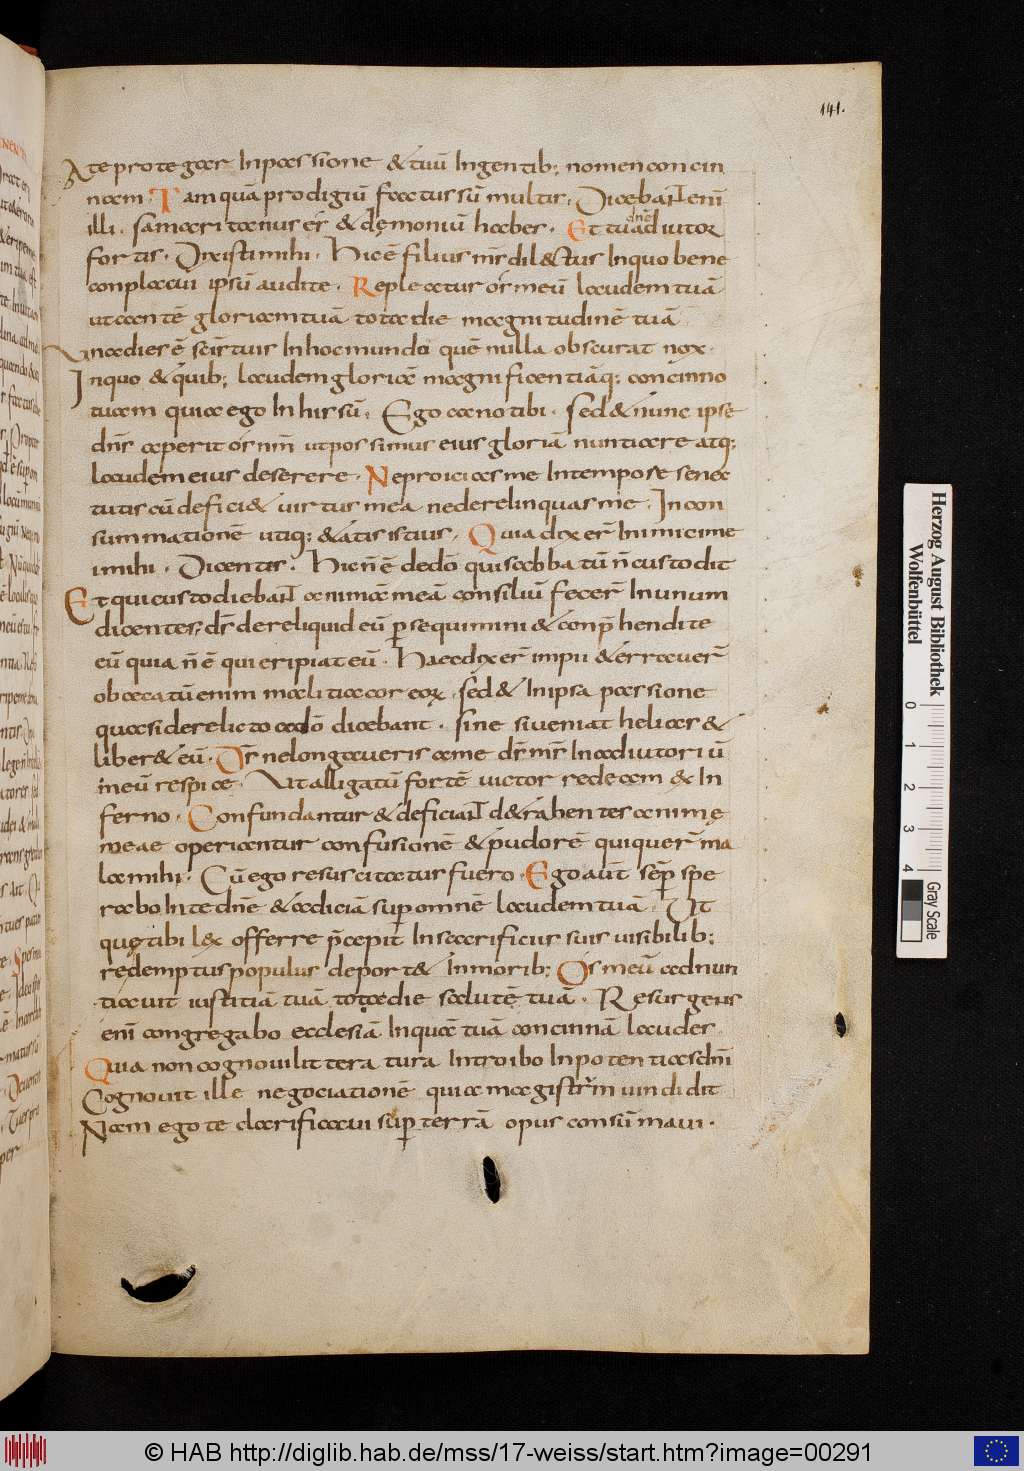 141.
A te protegar In passione & tuū Ingentib; nomen con cin
nam. Tam quā prodigiū factus sū multis. Dicebant enī
illi. samaritanus es & demoniū habes. Et tu dn̄e adiutor
fortis. Dixisti mihi. Hic ē filius m̄s dilectus In quo bene
conplacui ipsū audite. Repleatur os meū laude tuā
ut cantē gloriam tuā tota die magnitudinē tuā
Una dies ē scīs tuis In hoc mundo quē nulla obscurat nox.
In quo & quib; laudem gloriae magnificentiāq; concinno
tuam quia ego In his sū. Ego cano tibi. sed & nunc ipse
dn̄s aperit os nr̄m ut possimus eius gloriā nuntiare atq;
laudem eius deserere. Ne proicias me In tempore senec
tutis cū defici& uirtus mea ne derelinquas me. In con
summationē utiq; &atis istius. Quia dixer̄ Inimici me
i mihi. Dicentis. Hic n̄ ē de dō qui sabbatū n̄ custodit
Et qui custodiebant animā meā consiliū fecer̄ In unum
dicentes; ds̄ dereliquid eū p̄sequimini & conp̄hendite
eū quia n̄ ē qui eripiat eū. Haec dixer̄ impii & errauer̄
obcecatū enim malitia cor eoꝝ. sed & In ipsa passione
quasi derelicto a dō dicebant. sine si ueniat helias &
liber& eū. Ds̄ ne longaueris a me ds̄ ms̄ In adiutoriū
meū respice. Ut alligatū fortē uictor redeam ex In
ferno. Confundantur & deficiant d&rahentes animę
meae operiantur confusionē & pudorē qui quer̄ ma
la mihi. Cū ego resuscitatus fuero. Ego aūt sēp̄ spe
rabo In te dn̄e & adiciā sup̄ omnē laudem tuā. Ut
quę tibi lex offerre p̄cepit In sacrificiis suis uisibilib;
redemptus populus deport& In morib; Os meū adnun
tiauit iustitiā tuā tota die salutē tuā. Resurgens
enī congregabo ecclesiā In qua tuā concinnā laudes
Quia non cognoui litteratura Introibo In potentias dn̄i
Cognouit ille negociationē qui a magistr̄m uindidit
Nam ego te clarificaui sup̄ terrā opus consūmaui.
Herzog August Bibliothek
Wolfenbüttel
0 1 2 3 4
Gray Scale
© HAB http://diglib.hab.de/mss/17-weiss/start.htm?image=00291